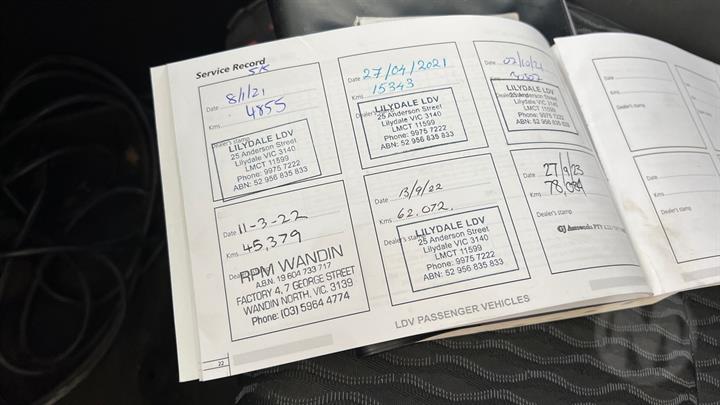 Service Record
5K
Date 8/1/21
Kms 4855
Dealer's stamp
LILYDALE LDV
25 Anderson Street
Lilydale VIC 3140
LMCT 11599
Phone: 9975 7222
ABN: 52 956 835 833
Date 27/04/2021
Kms 15343
Dealer's stamp
LILYDALE LDV
25 Anderson Street
Lilydale VIC 3140
LMCT 11599
Phone: 9975 7222
ABN: 52 956 835 833
Date 02/10/21
Kms
LILYDALE LDV
25 Anderson Street
Lilydale VIC 3140
LMCT 11599
Phone: 9975 7222
ABN: 52 956 835 833
Date 11-3-22
Kms 45,379
RPM WANDIN
A.B.N. 19 604 733 717
FACTORY 4, 7 GEORGE STREET
WANDIN NORTH, VIC. 3139
Phone: (03) 5964 4774
Date 13/9/22
Kms 62,072
Dealer's stamp
LILYDALE LDV
25 Anderson Street
Lilydale VIC 3140
LMCT 11599
Phone: 9975 7222
ABN: 52 956 835 833
Date 27/9/23
Kms 78,084
Dealer's stamp
Date
Kms
Dealer's stamp
Date
Kms
Dealer's stamp
22
LDV PASSENGER VEHICLES